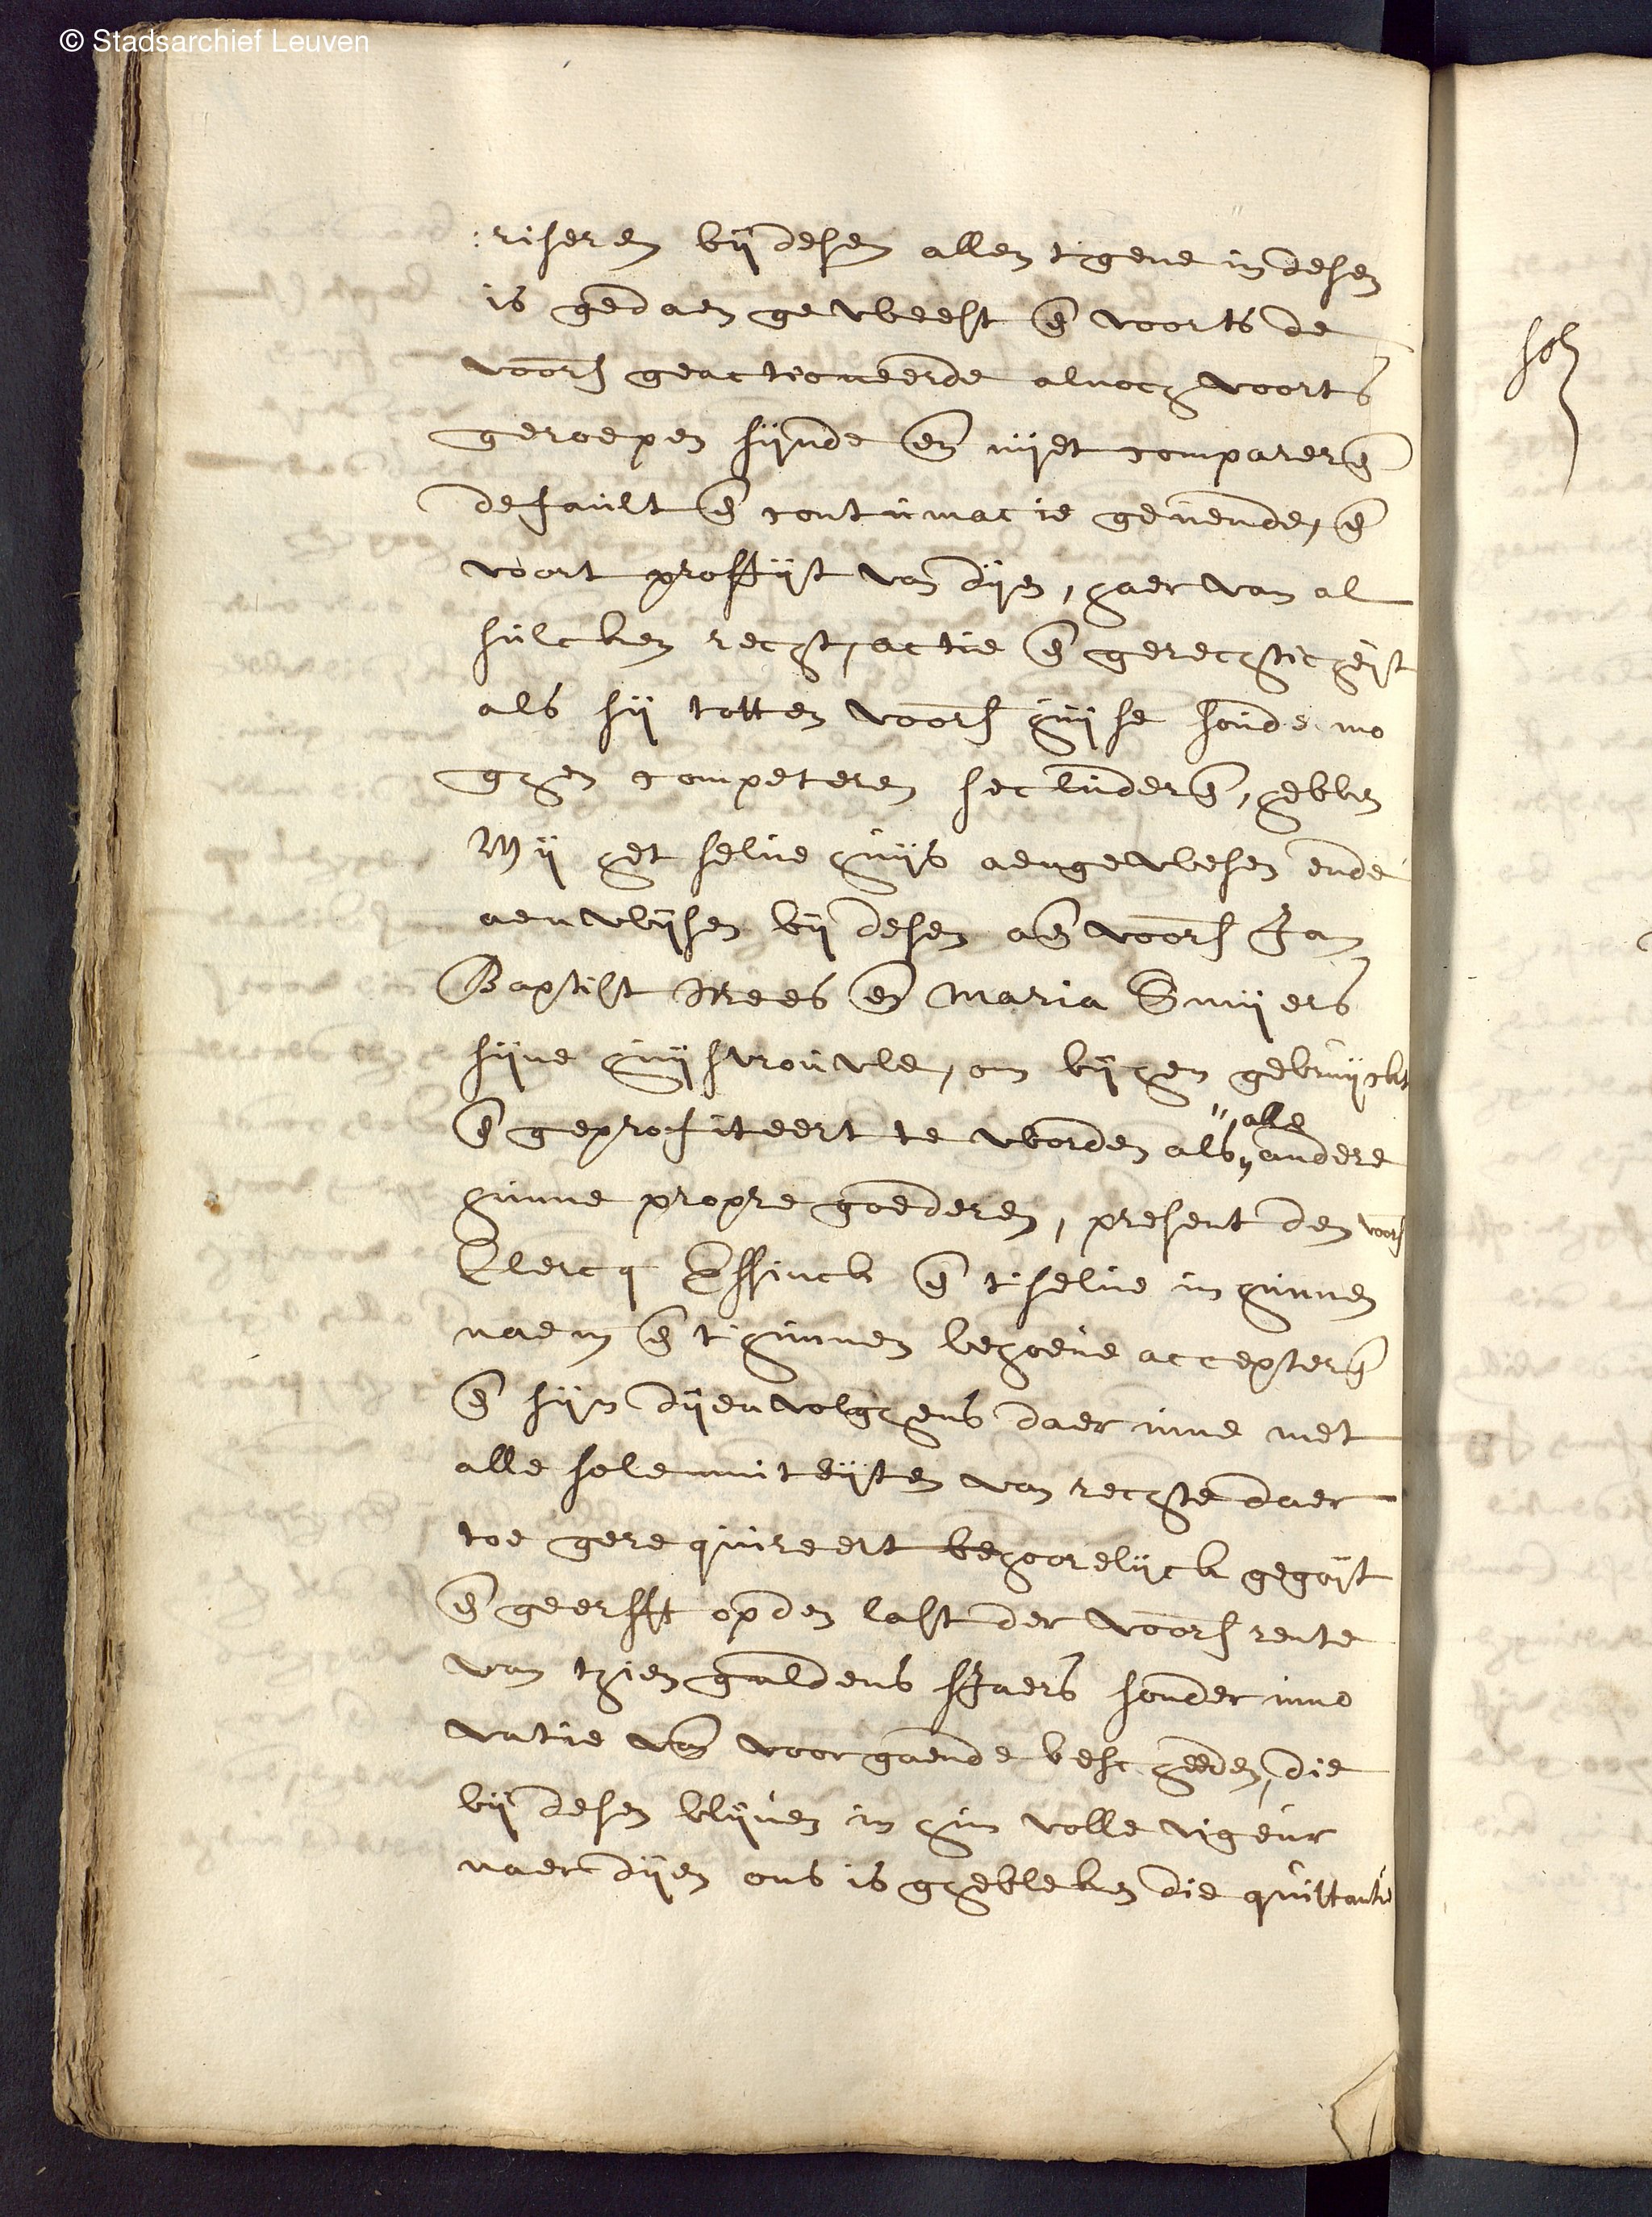 © Stadsarchief Leuven
riseren bij desen allen t'gene in desen
is gedaen geweest en̄ voorts de
voors geactioneerde alnoch voorts
geroepen sijnde en̄ nijet comparerēn
default en̄ contumacie gevende, en̄
voort proffijt van dijen, haer van al
sulcken recht, actie en̄ gerechticheijt
als sij totten voors huijse soude mo
ghen competeren secluderēn, hebben
Wij het selve huijs aengewesen ende
aenwijsen bij desen aen̄ voors Jan
Baptist Mees en̄ Maria Smijers
sijne huijsvrouwe, om bij hen gebruijckt
en̄ geprofiteert te worden als alle andere
hunne propre goederen, present den voors
Clercq Essinck en̄ t'selve in hunnen
naem en̄ t'hunnen behoeve accepterēn
en̄ sijn dijenvolghens daer inne met
alle solemniteijten van rechte daer
toe gerequireert behoorelijck gegoijt
en̄ geerfft op den last der voors rente
van thien guldens sjaers sonder inno
vatie van̄ voorgaende bescheeden, die
bij desen blijven in hun volle vigeur
naer dijen ons is ghebleken die quittantie